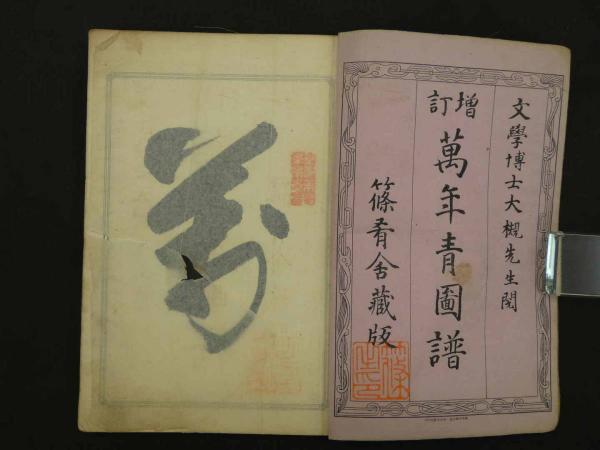 文學博士大槻先生閲
増訂
萬年青圖譜
篠肴舍藏版
萬